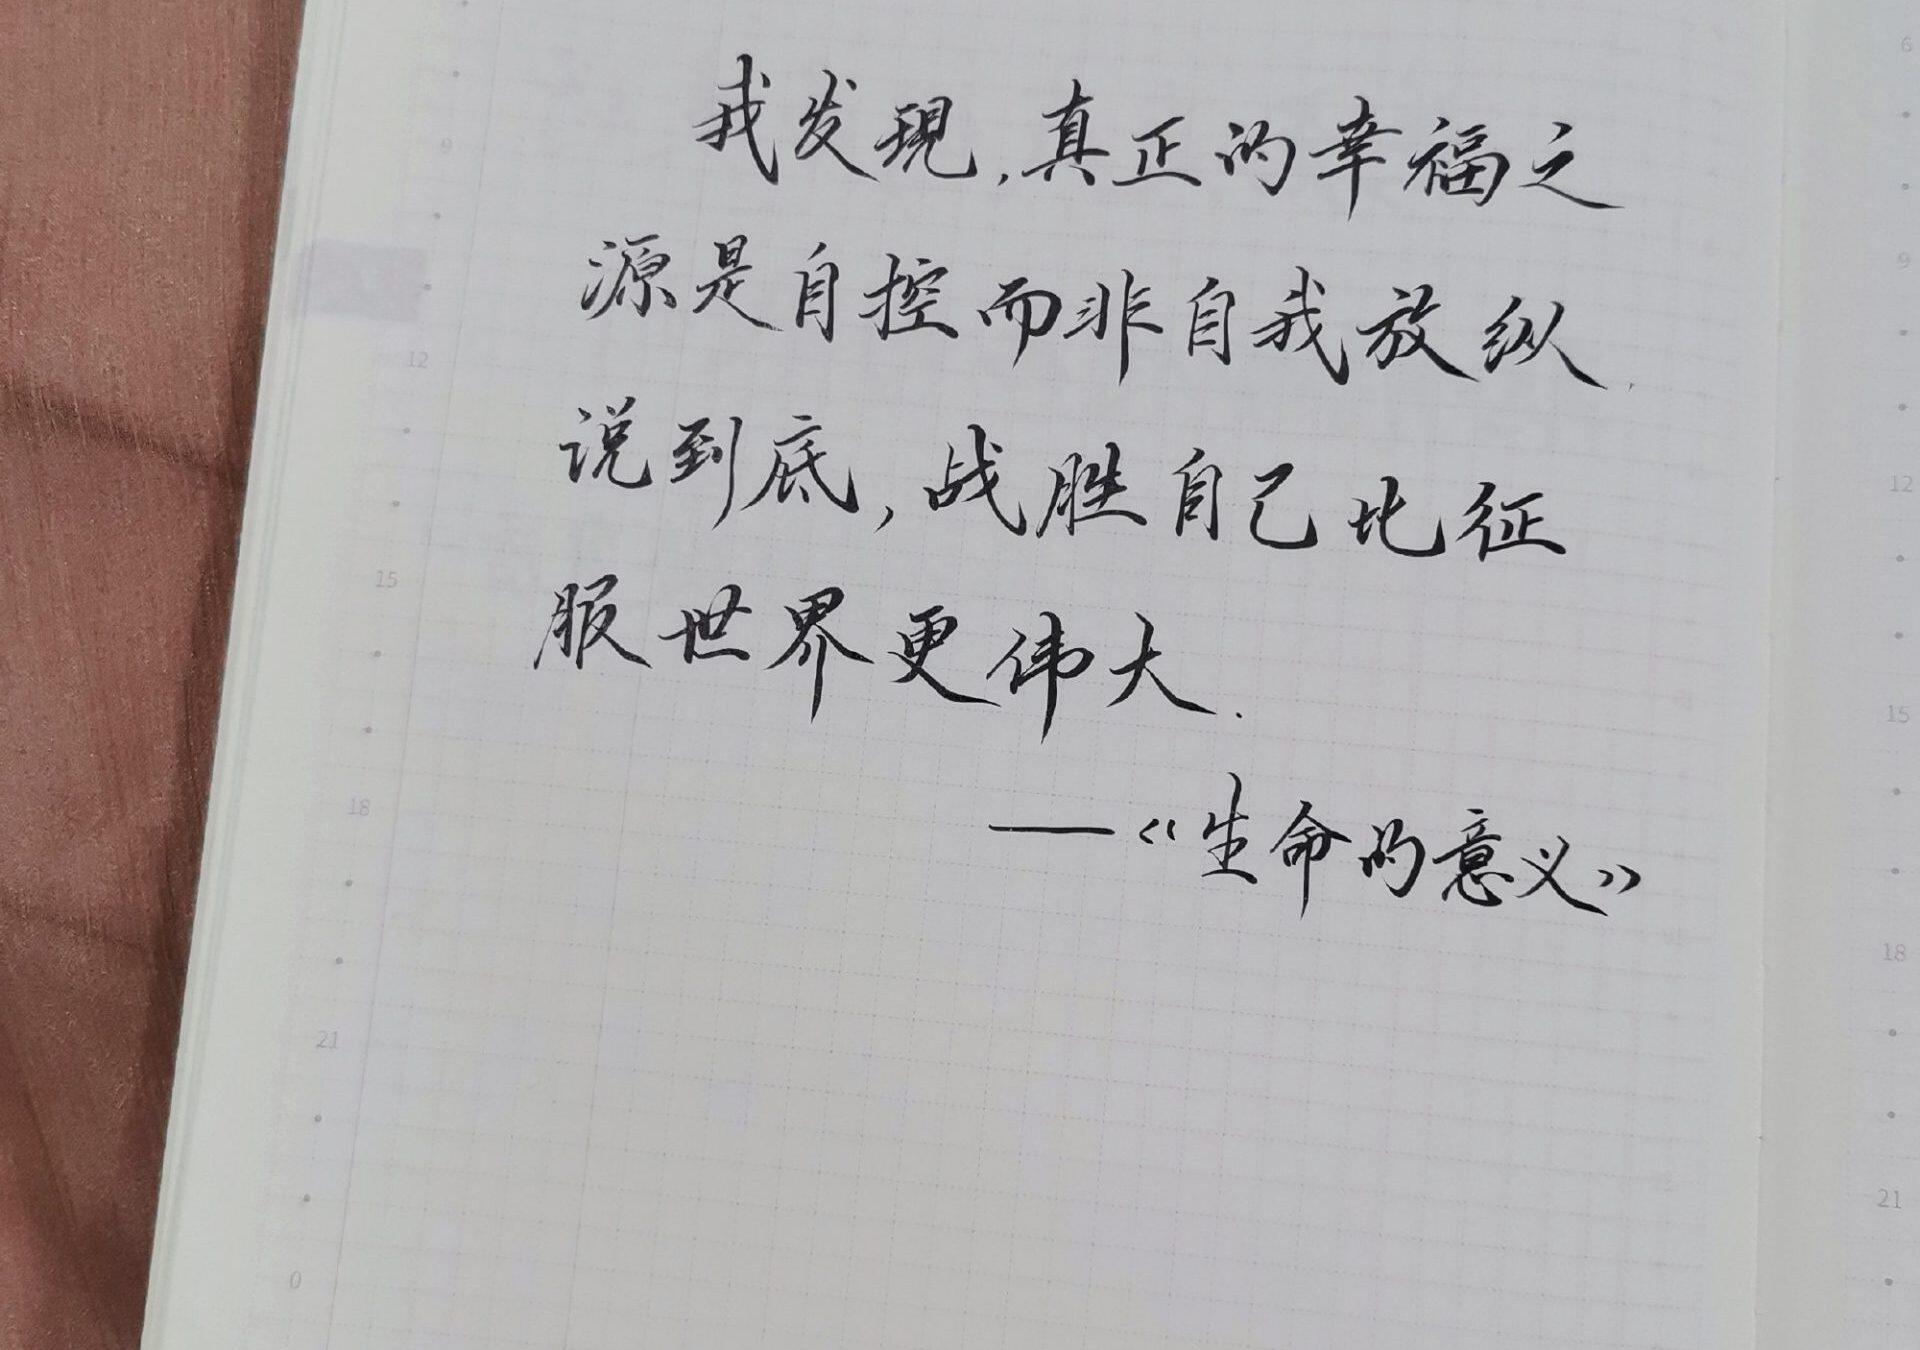 我发现,真正的幸福之
源是自控而非自我放纵,
说到底,战胜自己比征
服世界更伟大.
——《生命的意义》
9
12
15
18
21
0
6
9
12
15
18
21